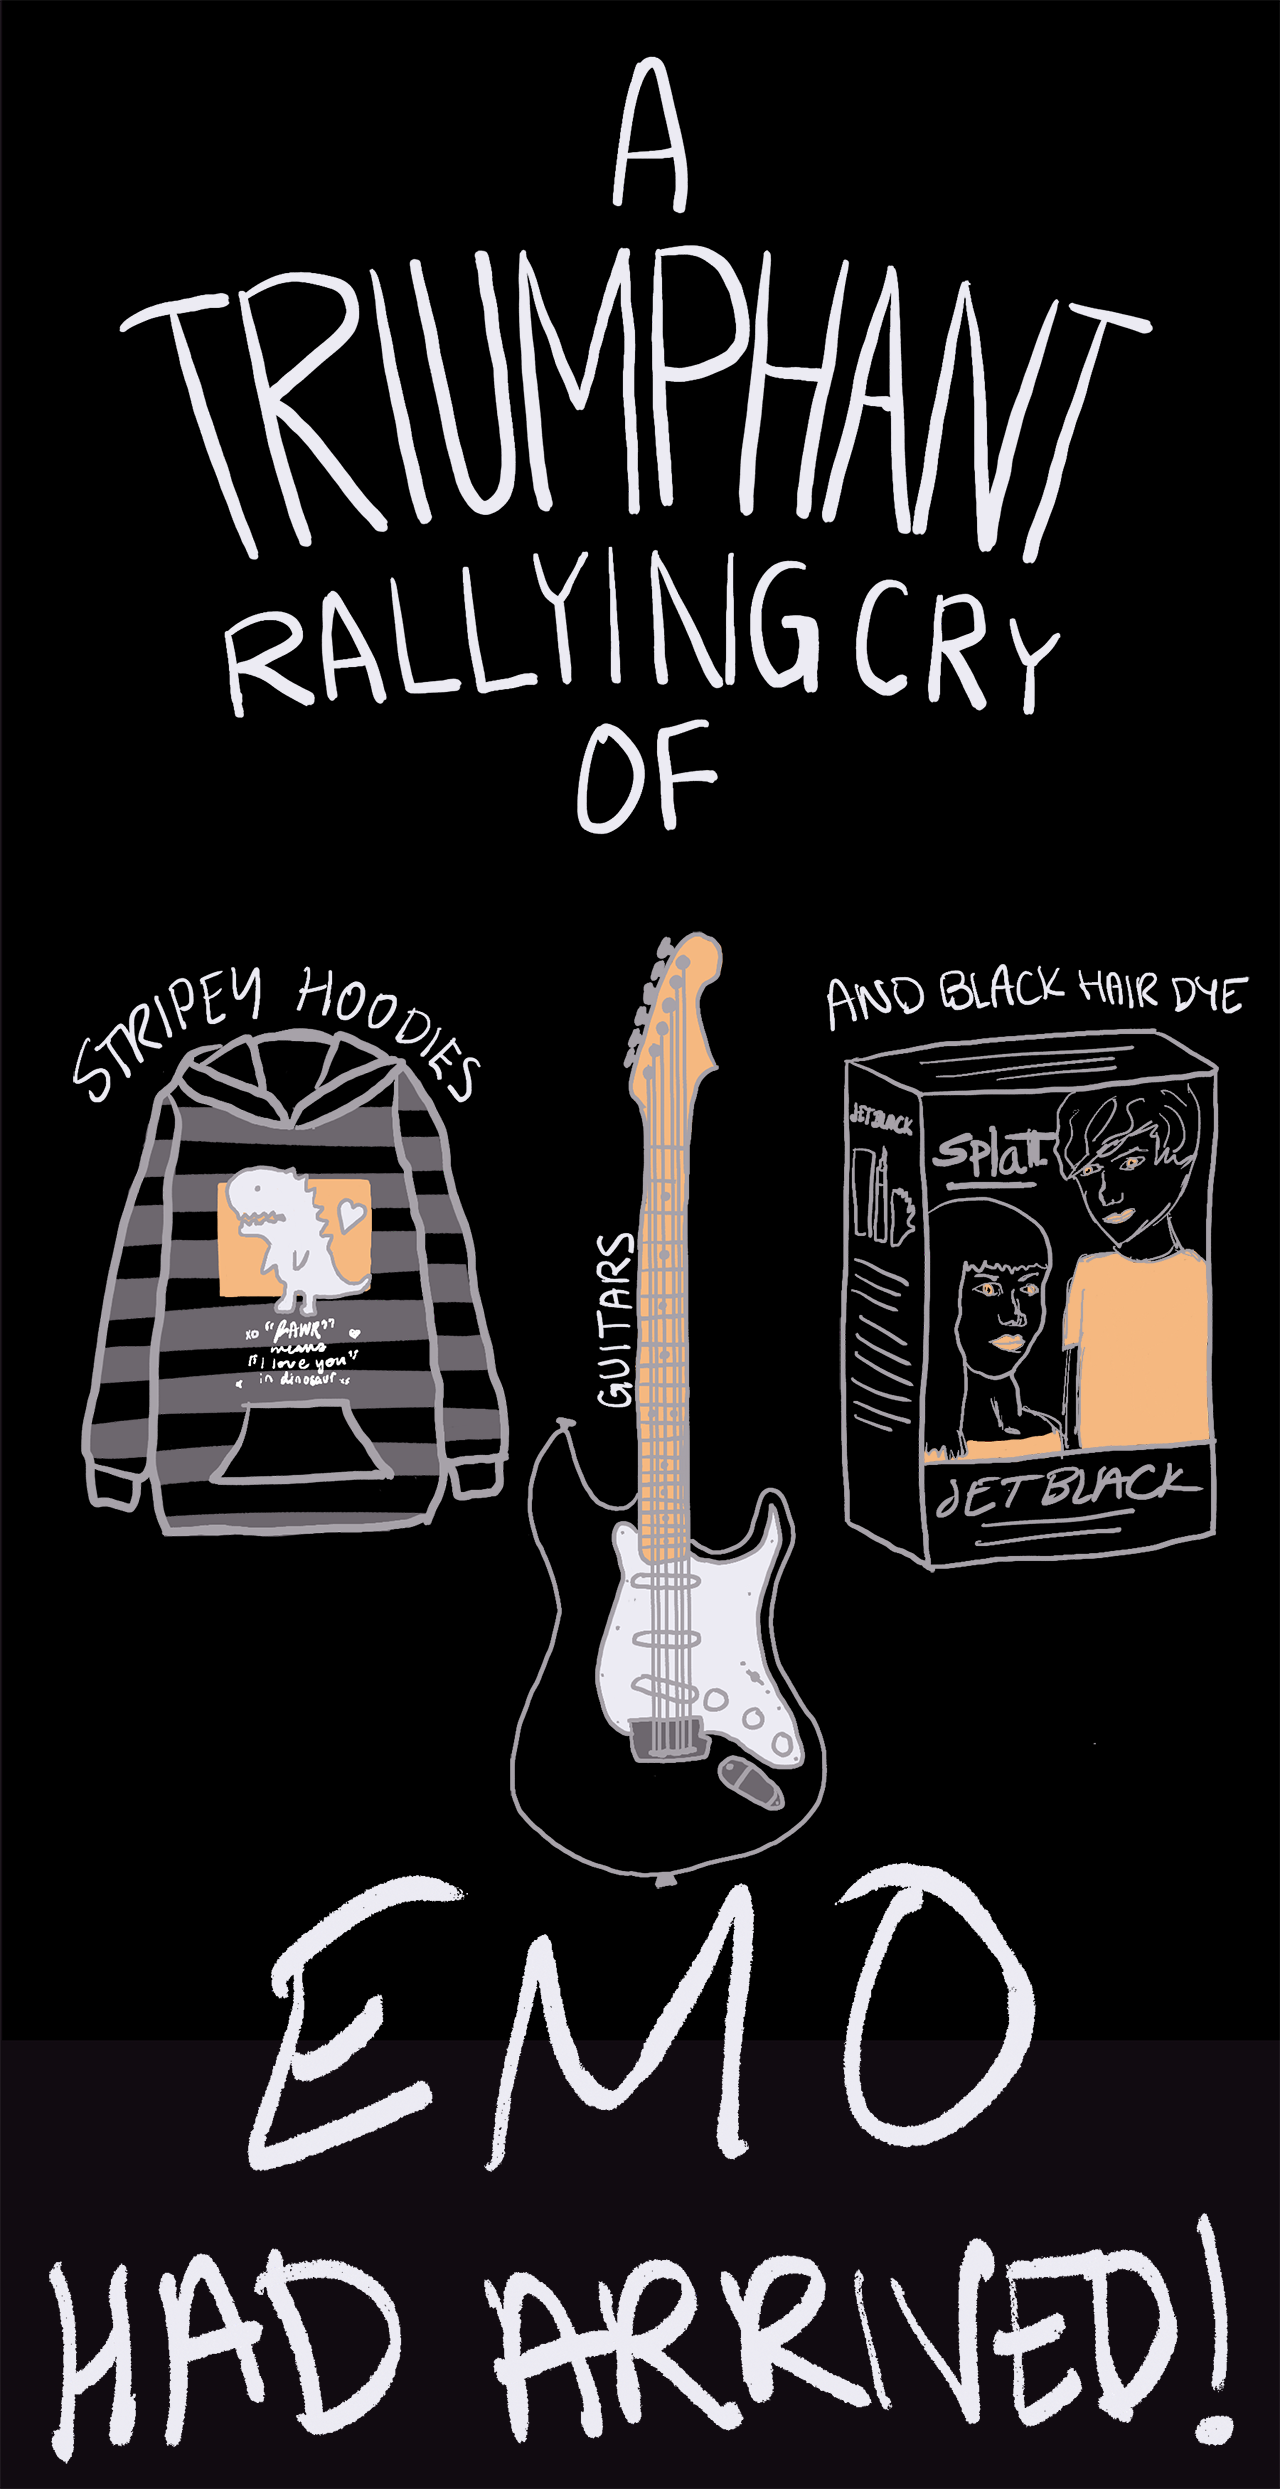 A
TRIUMPHANT
RALLYING CRY
OF
STRIPEY HOODIES
xo "RAWR"
means
"I love you"
in dinosaur xs
GUITARS
AND BLACK HAIR DYE
JET BLACK
Splatt
JET BLACK
EMO
HAD ARRIVED!